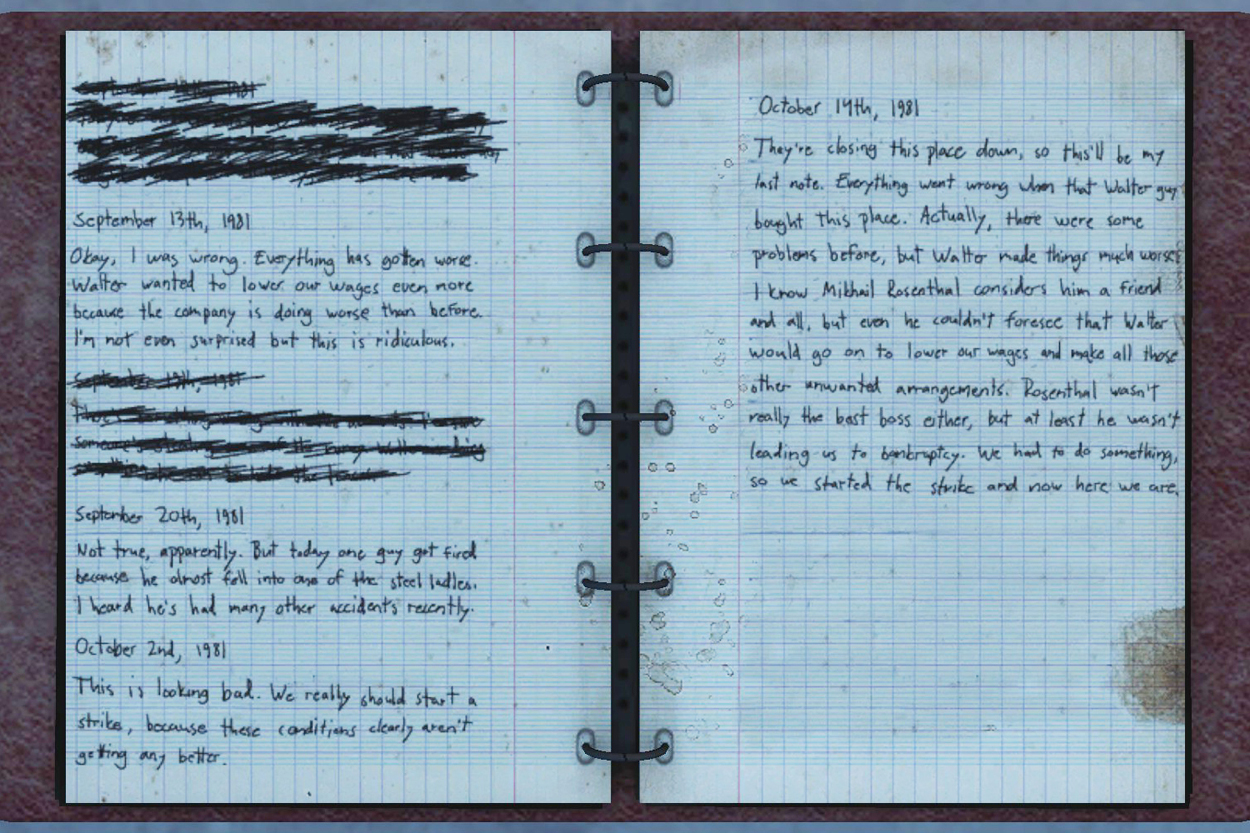 September 13th, 1981
Okay, I was wrong. Everything has gotten worse.
Walter wanted to lower our wages even more
because the company is doing worse than before.
I'm not even surprised but this is ridiculous.
September 20th, 1981
Not true, apparently. But today one guy got fired
because he almost fell into one of the steel ladles.
I heard he's had many other accidents recently.
October 2nd, 1981
This is looking bad. We really should start a
strike, because these conditions clearly aren't
getting any better.
October 14th, 1981
They're closing this place down, so this'll be my
last note. Everything went wrong when that Walter guy
bought this place. Actually, there were some
problems before, but Walter made things much worse.
I know Mikhail Rosenthal considers him a friend
and all, but even he couldn't foresee that Walter
would go on to lower our wages and make all those
other unwanted arrangements. Rosenthal wasn't
really the best boss either, but at least he wasn't
leading us to bankruptcy. We had to do something,
so we started the strike and now here we are.